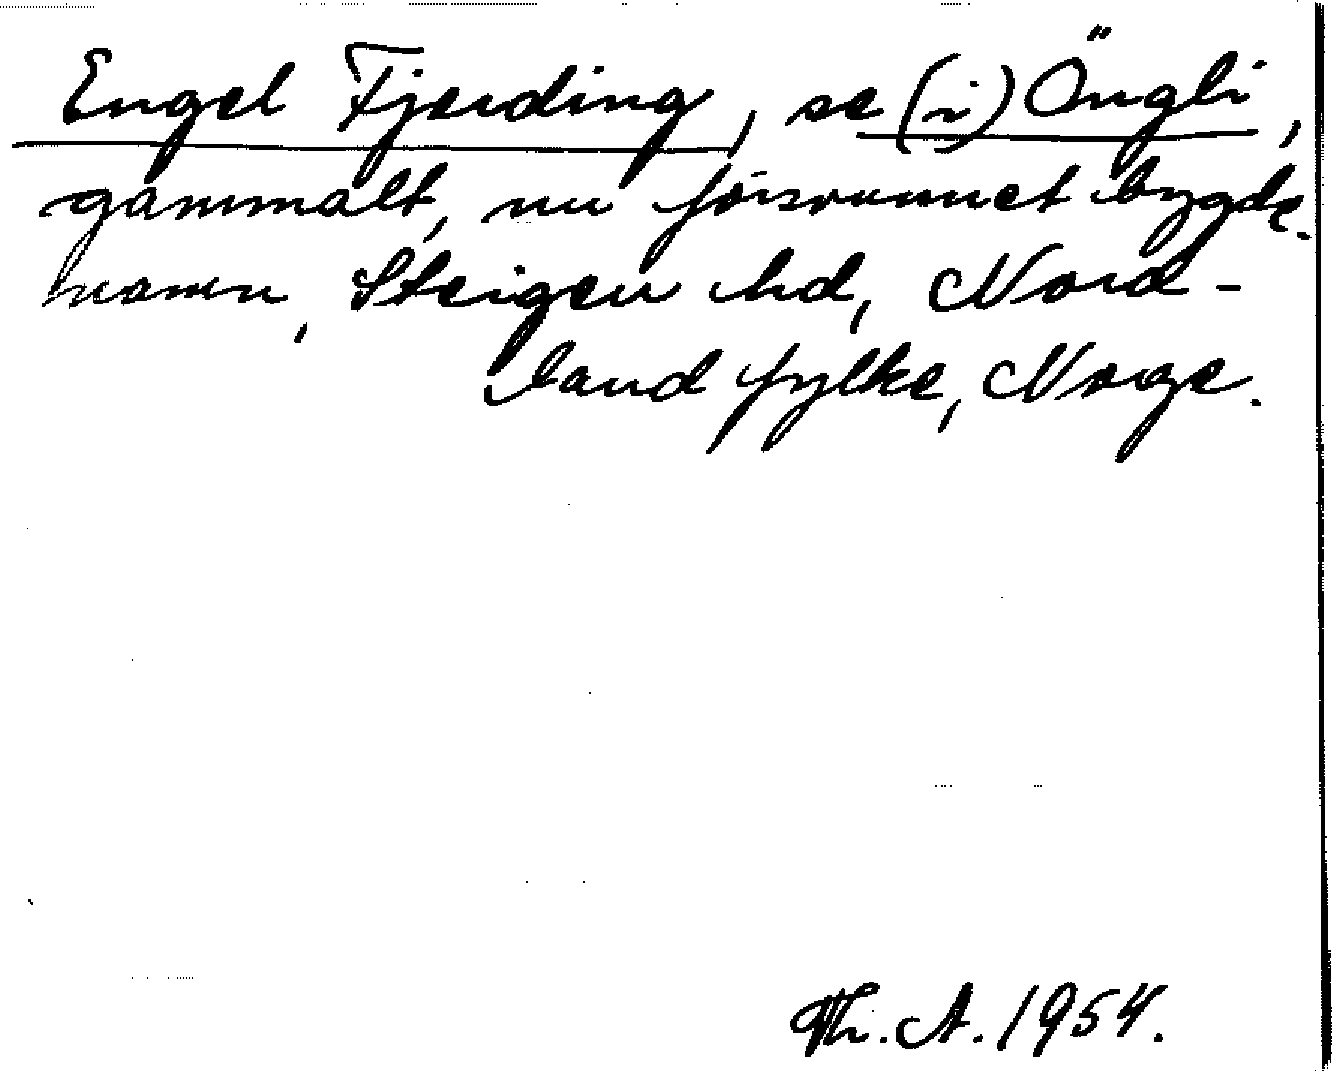 Engel Fjerding, se (i) Öngli,
gammalt, nu försvunnet bygde-
namn, Steigen hd, Nord-
land fylke, Norge.
Th. A. 1954.